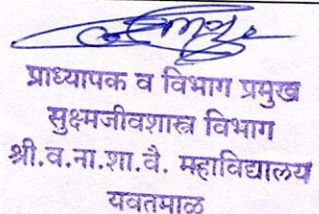 प्राध्यापक व विभाग प्रमुख
सुक्ष्मजीवशास्त्र विभाग
श्री.व.ना.शा.वै. महाविद्यालय
यवतमाळ